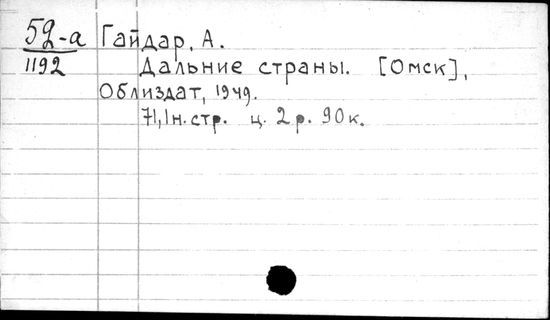 52-а Гайдар, А.
1192 Дальние страны. [Омск],
Облиздат, 1949.
71,1н.стр. ц. 2 р. 90 к.